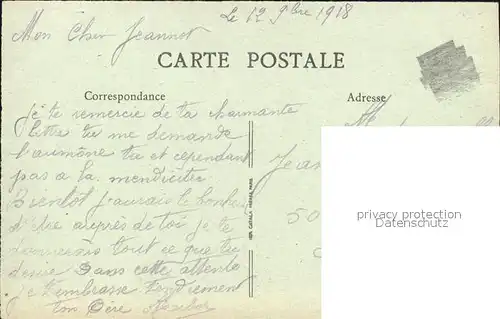 Le 12 9bre 1918
Mon Cher Jeannot
CARTE POSTALE
Correspondance
Adresse
Je te remercie de ta charmante
lettre tu me demande
l'aumône tu et cependant
pas a la mendicitée
Bientot j'aurais le bonheur
d'être auprès de toi je te
donnerais tout ce que tu
desire Dans cette attente
je t'embrasse tendrement
ton Père
Jean
50
IMP. CATALA FRÈRES, PARIS
privacy protection
Datenschutz